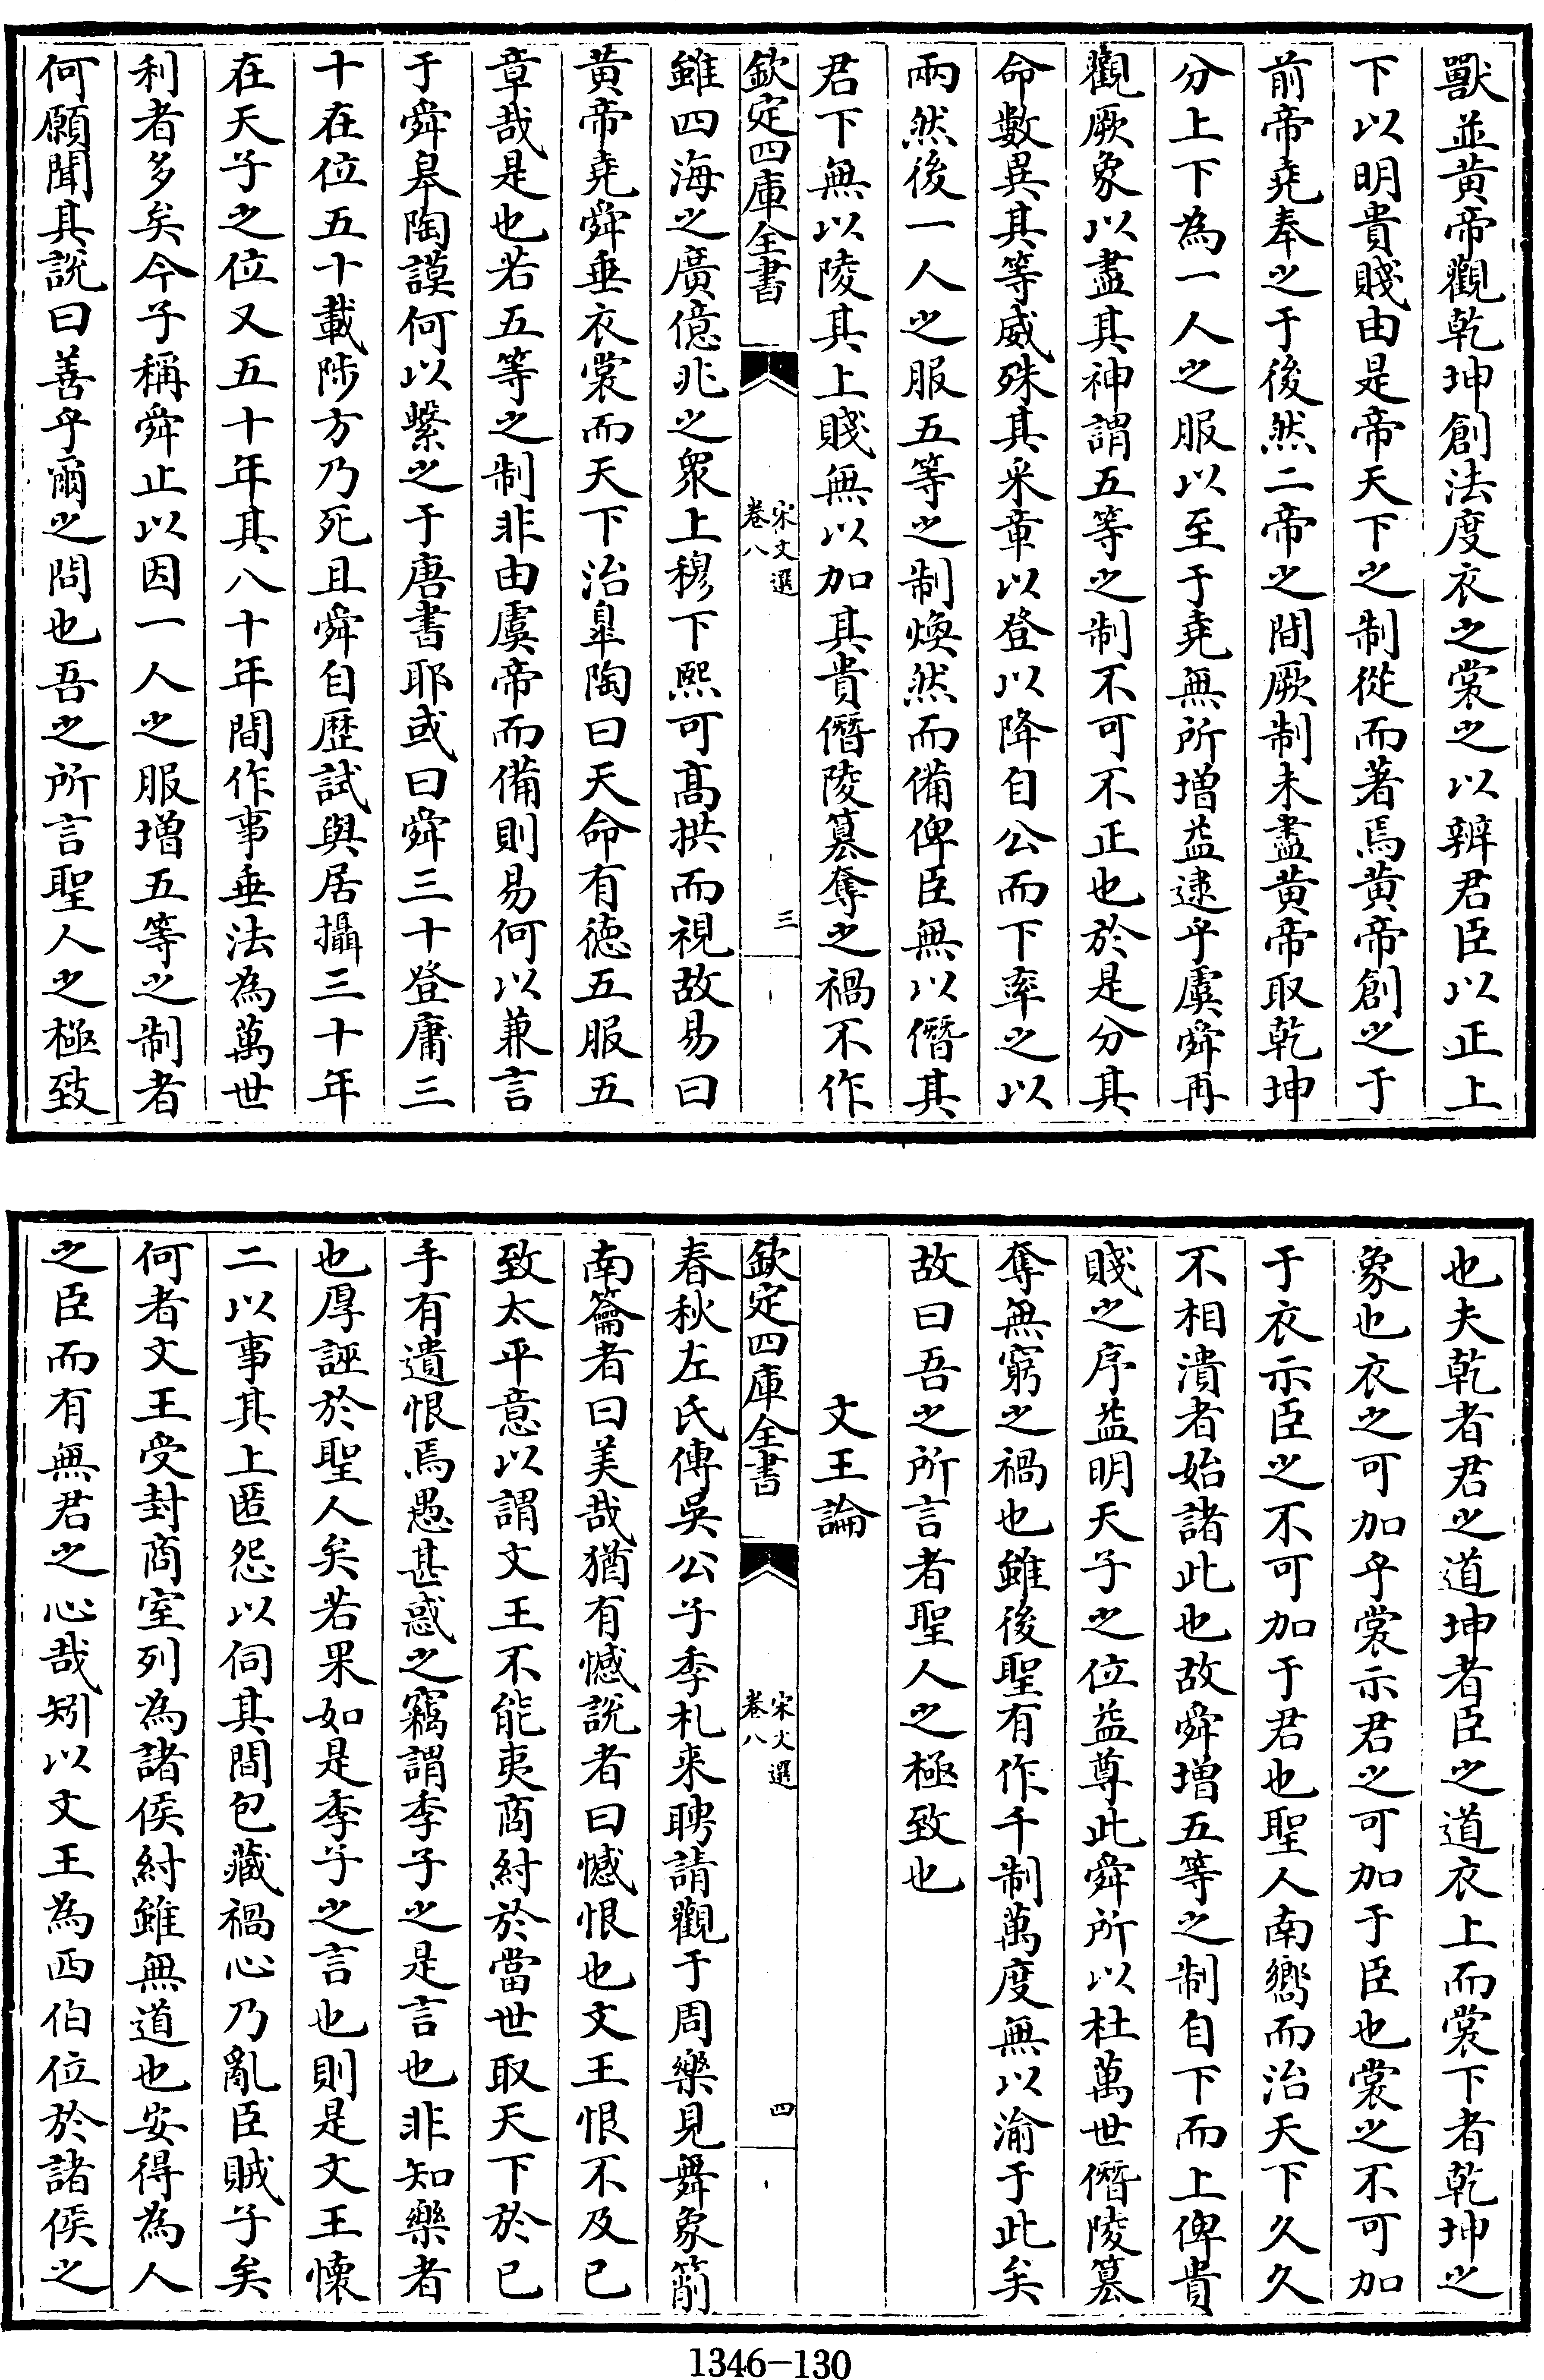 獸並黄帝觀乾坤創法度衣之裳之以辨君臣以正上
下以明貴賤由是帝天下之制從而著焉黄帝創之于
前帝堯奉之于後然二帝之間厥制未盡黄帝取乾坤
分上下為一人之服以至于堯無所增益逮乎虞舜再
觀厥象以盡其神謂五等之制不可不正也於是分其
命數異其等威殊其采章以登以降自公而下率之以
兩然後一人之服五等之制煥然而備俾臣無以僭其
君下無以陵其上賤無以加其貴僭陵簒奪之禍不作
欽定四庫全書
宋文選
卷八
三
雖四海之廣億兆之衆上穆下熙可髙拱而視故易曰
黄帝堯舜垂衣裳而天下治臯陶曰天命有德五服五
章哉是也若五等之制非由虞帝而備則易何以兼言
于舜皋陶謨何以繫之于唐書耶或曰舜三十登庸三
十在位五十載陟方乃死且舜自歴試與居攝三十年
在天子之位又五十年其八十年間作事垂法為萬世
利者多矣今子稱舜止以因一人之服增五等之制者
何願聞其說曰善乎爾之問也吾之所言聖人之極致
也夫乾者君之道坤者臣之道衣上而裳下者乾坤之
象也衣之可加乎裳示君之可加于臣也裳之不可加
于衣示臣之不可加于君也聖人南嚮而治天下久久
不相瀆者始諸此也故舜增五等之制自下而上俾貴
賤之序益明天子之位益尊此舜所以杜萬世僭陵簒
奪無窮之禍也雖後聖有作千制萬度無以渝于此矣
故曰吾之所言者聖人之極致也
文王論
欽定四庫全書
宋文選
卷八
四
春秋左氏傳吳公子季札来聘請觀于周樂見舞象箾
南籥者曰美哉猶有憾說者曰憾恨也文王恨不及已
致太平意以謂文王不能夷商紂於當世取天下於已
手有遺恨焉愚甚惑之竊謂季子之是言也非知樂者
也厚誣於聖人矣若果如是季子之言也則是文王懷
二以事其上匿怨以伺其間包藏禍心乃亂臣賊子矣
何者文王受封商室列為諸侯紂雖無道也安得為人
之臣而有無君之心哉矧以文王為西伯位於諸侯之
1346-130